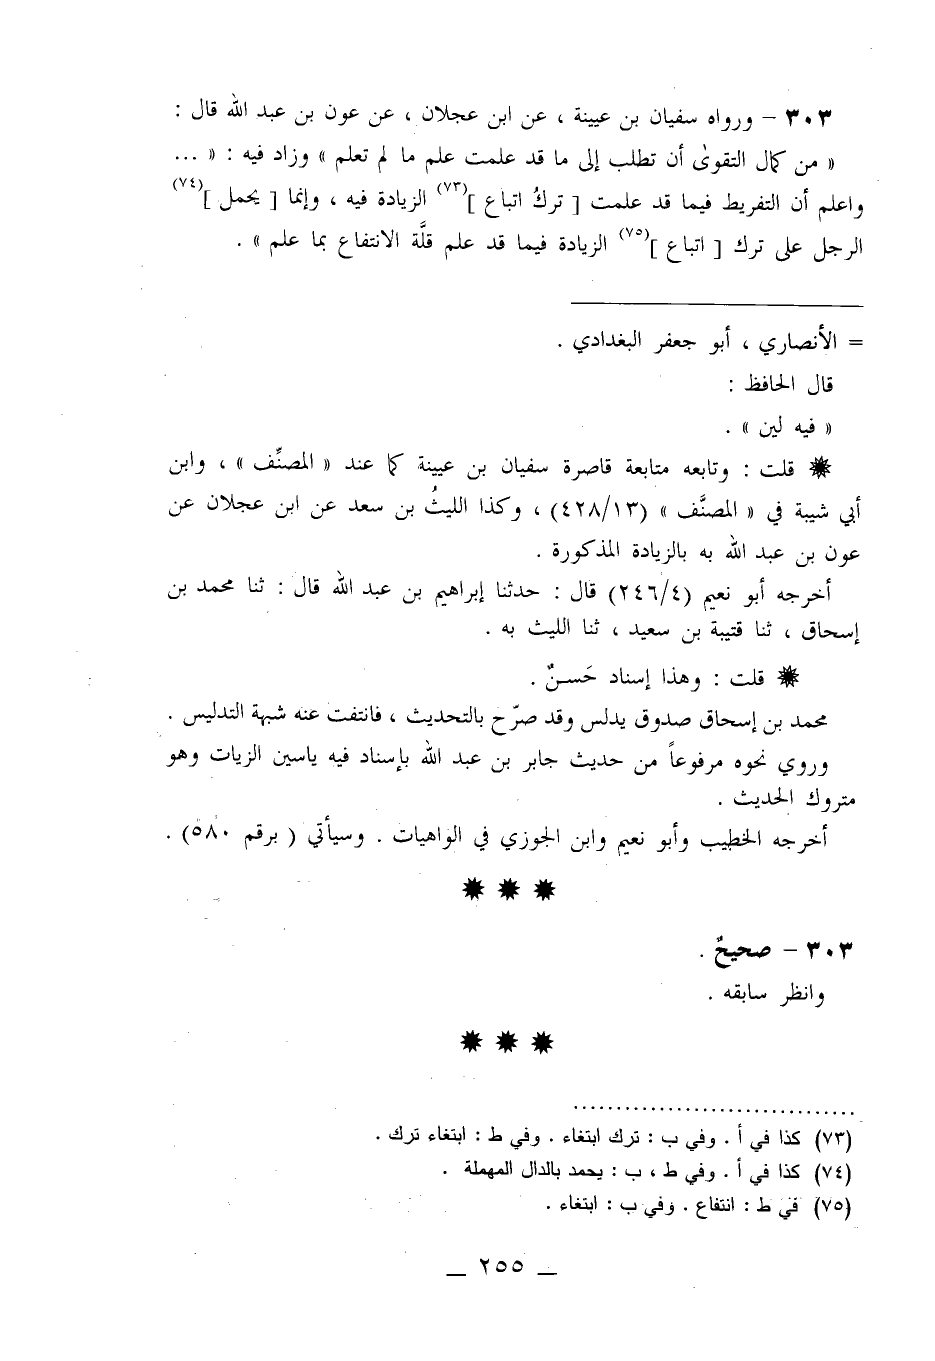 ٣٠٣ – ورواه سفيان بن عيينة ، عن ابن عجلان ، عن عون بن عبد الله قال :
« من كمال التقوىٰ أن تطلب إلى ما قد علمت علم ما لم تعلم » وزاد فيه : « ...
واعلم أن التفريط فيما قد علمت [ تركُ اتباع ](٧٣) الزيادة فيه ، وإنما [ يحمل ](٧٤)
الرجل على ترك [ اتباع ](٧٥) الزيادة فيما قد علم قلَّة الانتفاع بما علم » .
= الأنصاري ، أبو جعفر البغدادي .
قال الحافظ :
« فيه لين » .
✹ قلت : وتابعه متابعة قاصرة سفيان بن عيينة كما عند « المصنِّف » ، وابن
أبي شيبة في « المصنَّف » (٤٢٨/١٣) ، وكذا الليثُ بن سعد عن ابن عجلان عن
عون بن عبد الله به بالزيادة المذكورة .
أخرجه أبو نعيم (٢٤٦/٤) قال : حدثنا إبراهيم بن عبد الله قال : ثنا محمد بن
إسحاق ، ثنا قتيبة بن سعيد ، ثنا الليث به .
✹ قلت : وهذا إسناد حَسنٌ .
محمد بن إسحاق صدوق يدلس وقد صرّح بالتحديث ، فانتفت عنه شبهة التدليس .
وروي نحوه مرفوعاً من حديث جابر بن عبد الله بإسناد فيه ياسين الزيات وهو
متروك الحديث .
أخرجه الخطيب وأبو نعيم وابن الجوزي في الواهيات . وسيأتي ( برقم ٥٨٠ ) .
✹ ✹ ✹
٣٠٣ – صحيحٌ .
وانظر سابقه .
✹ ✹ ✹
(٧٣) كذا في أ . وفي ب : ترك ابتغاء . وفي ط : ابتغاء ترك .
(٧٤) كذا في أ . وفي ط ، ب : يحمد بالدال المهملة .
(٧٥) في ط : انتفاع . وفي ب : ابتغاء .
_ ٢٥٥ _